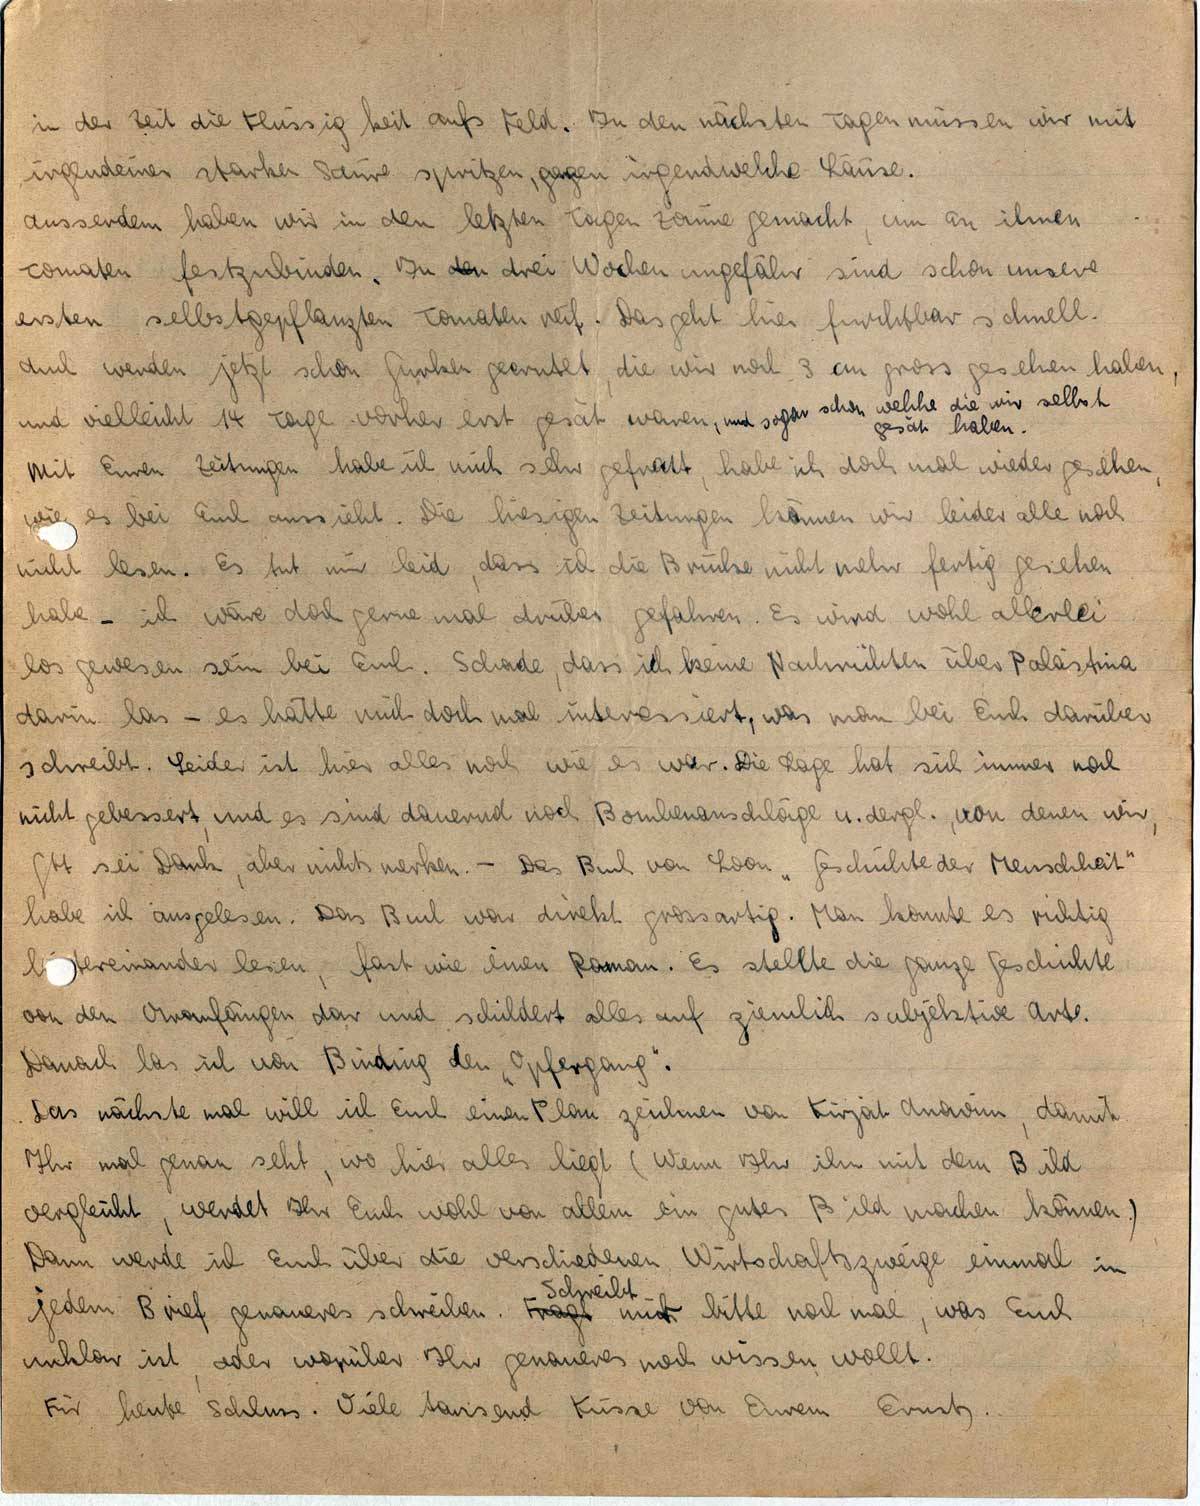 in der Zeit die Flüssig keit aufs Feld. In den nächsten Tagen müssen wir mit
irgendeiner starken Säure spritzen, gegen irgendwelche Läuse.
ausserdem haben wir in den letzten Tagen Zäune gemacht, um an ihnen
Tomaten festzubinden. In den drei Wochen ungefähr sind schon unsere
ersten selbstgepflanzten Tomaten reif. Das geht hier furchtbar schnell.
Auch werden jetzt schon Gurken geerntet, die wir noch 3 cm gross gesehen haben,
und vielleicht 14 Tage vorher erst gesät waren, und sogar schon welche die wir selbst
gesät haben.
Mit Euren Zeitungen habe ich mich sehr gefreut, habe ich doch mal wieder gesehen,
wie es bei Euch aussieht. Die hiesigen Zeitungen können wir leider alle noch
nicht lesen. Es tut mir leid, dass ich die Brücke nicht mehr fertig gesehen
habe – ich wäre doch gerne mal drüber gefahren. Es wird wohl allerlei
los gewesen sein bei Euch. Schade, dass ich keine Nachrichten über Palästina
darin las – es hätte mich doch mal interessiert, was man bei Euch darüber
schreibt. Leider ist hier alles noch wie es war. Die Lage hat sich immer noch
nicht gebessert, und es sind dauernd noch Bombenanschläge u. dergl., von denen wir,
Gtt sei Dank, aber nichts merken. – Das Buch von Loon „Geschichte der Menschheit"
habe ich ausgelesen. Das Buch war direkt grossartig. Man konnte es richtig
hintereinander lesen, fast wie einen Roman. Es stellte die ganze Geschichte
von den Uranfängen dar und schildert alles auf ziemlich subjektive Arte.
Danach las ich von Binding den „Opfergang".
Das nächste mal will ich Euch einen Plan zeichnen von Kirjat Anavim, damit
Ihr mal genau seht, wo hier alles liegt (Wenn Ihr ihn mit dem Bild
vergleicht, werdet Ihr Euch wohl von allem ein gutes Bild machen können.)
Dann werde ich Euch über die verschiedenen Wirtschaftszweige einmal in
jedem Brief genaueres schreiben. Fragt Schreibt mir bitte noch mal, was Euch
unklar ist, oder worüber Ihr genaueres noch wissen wollt.
Für heute Schluss. Viele tausend Küsse von Eurem Ernst.